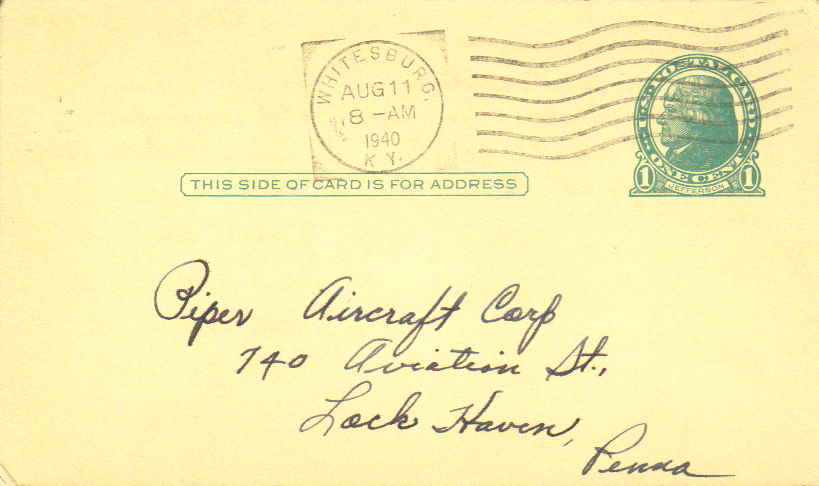 WHITESBURG.
AUG 11
8 - AM
1940
KY.
U.S. POSTAL CARD
ONE CENT
1 JEFFERSON 1
THIS SIDE OF CARD IS FOR ADDRESS
Piper Aircraft Corp
740 Aviation St.,
Lock Haven,
Penna